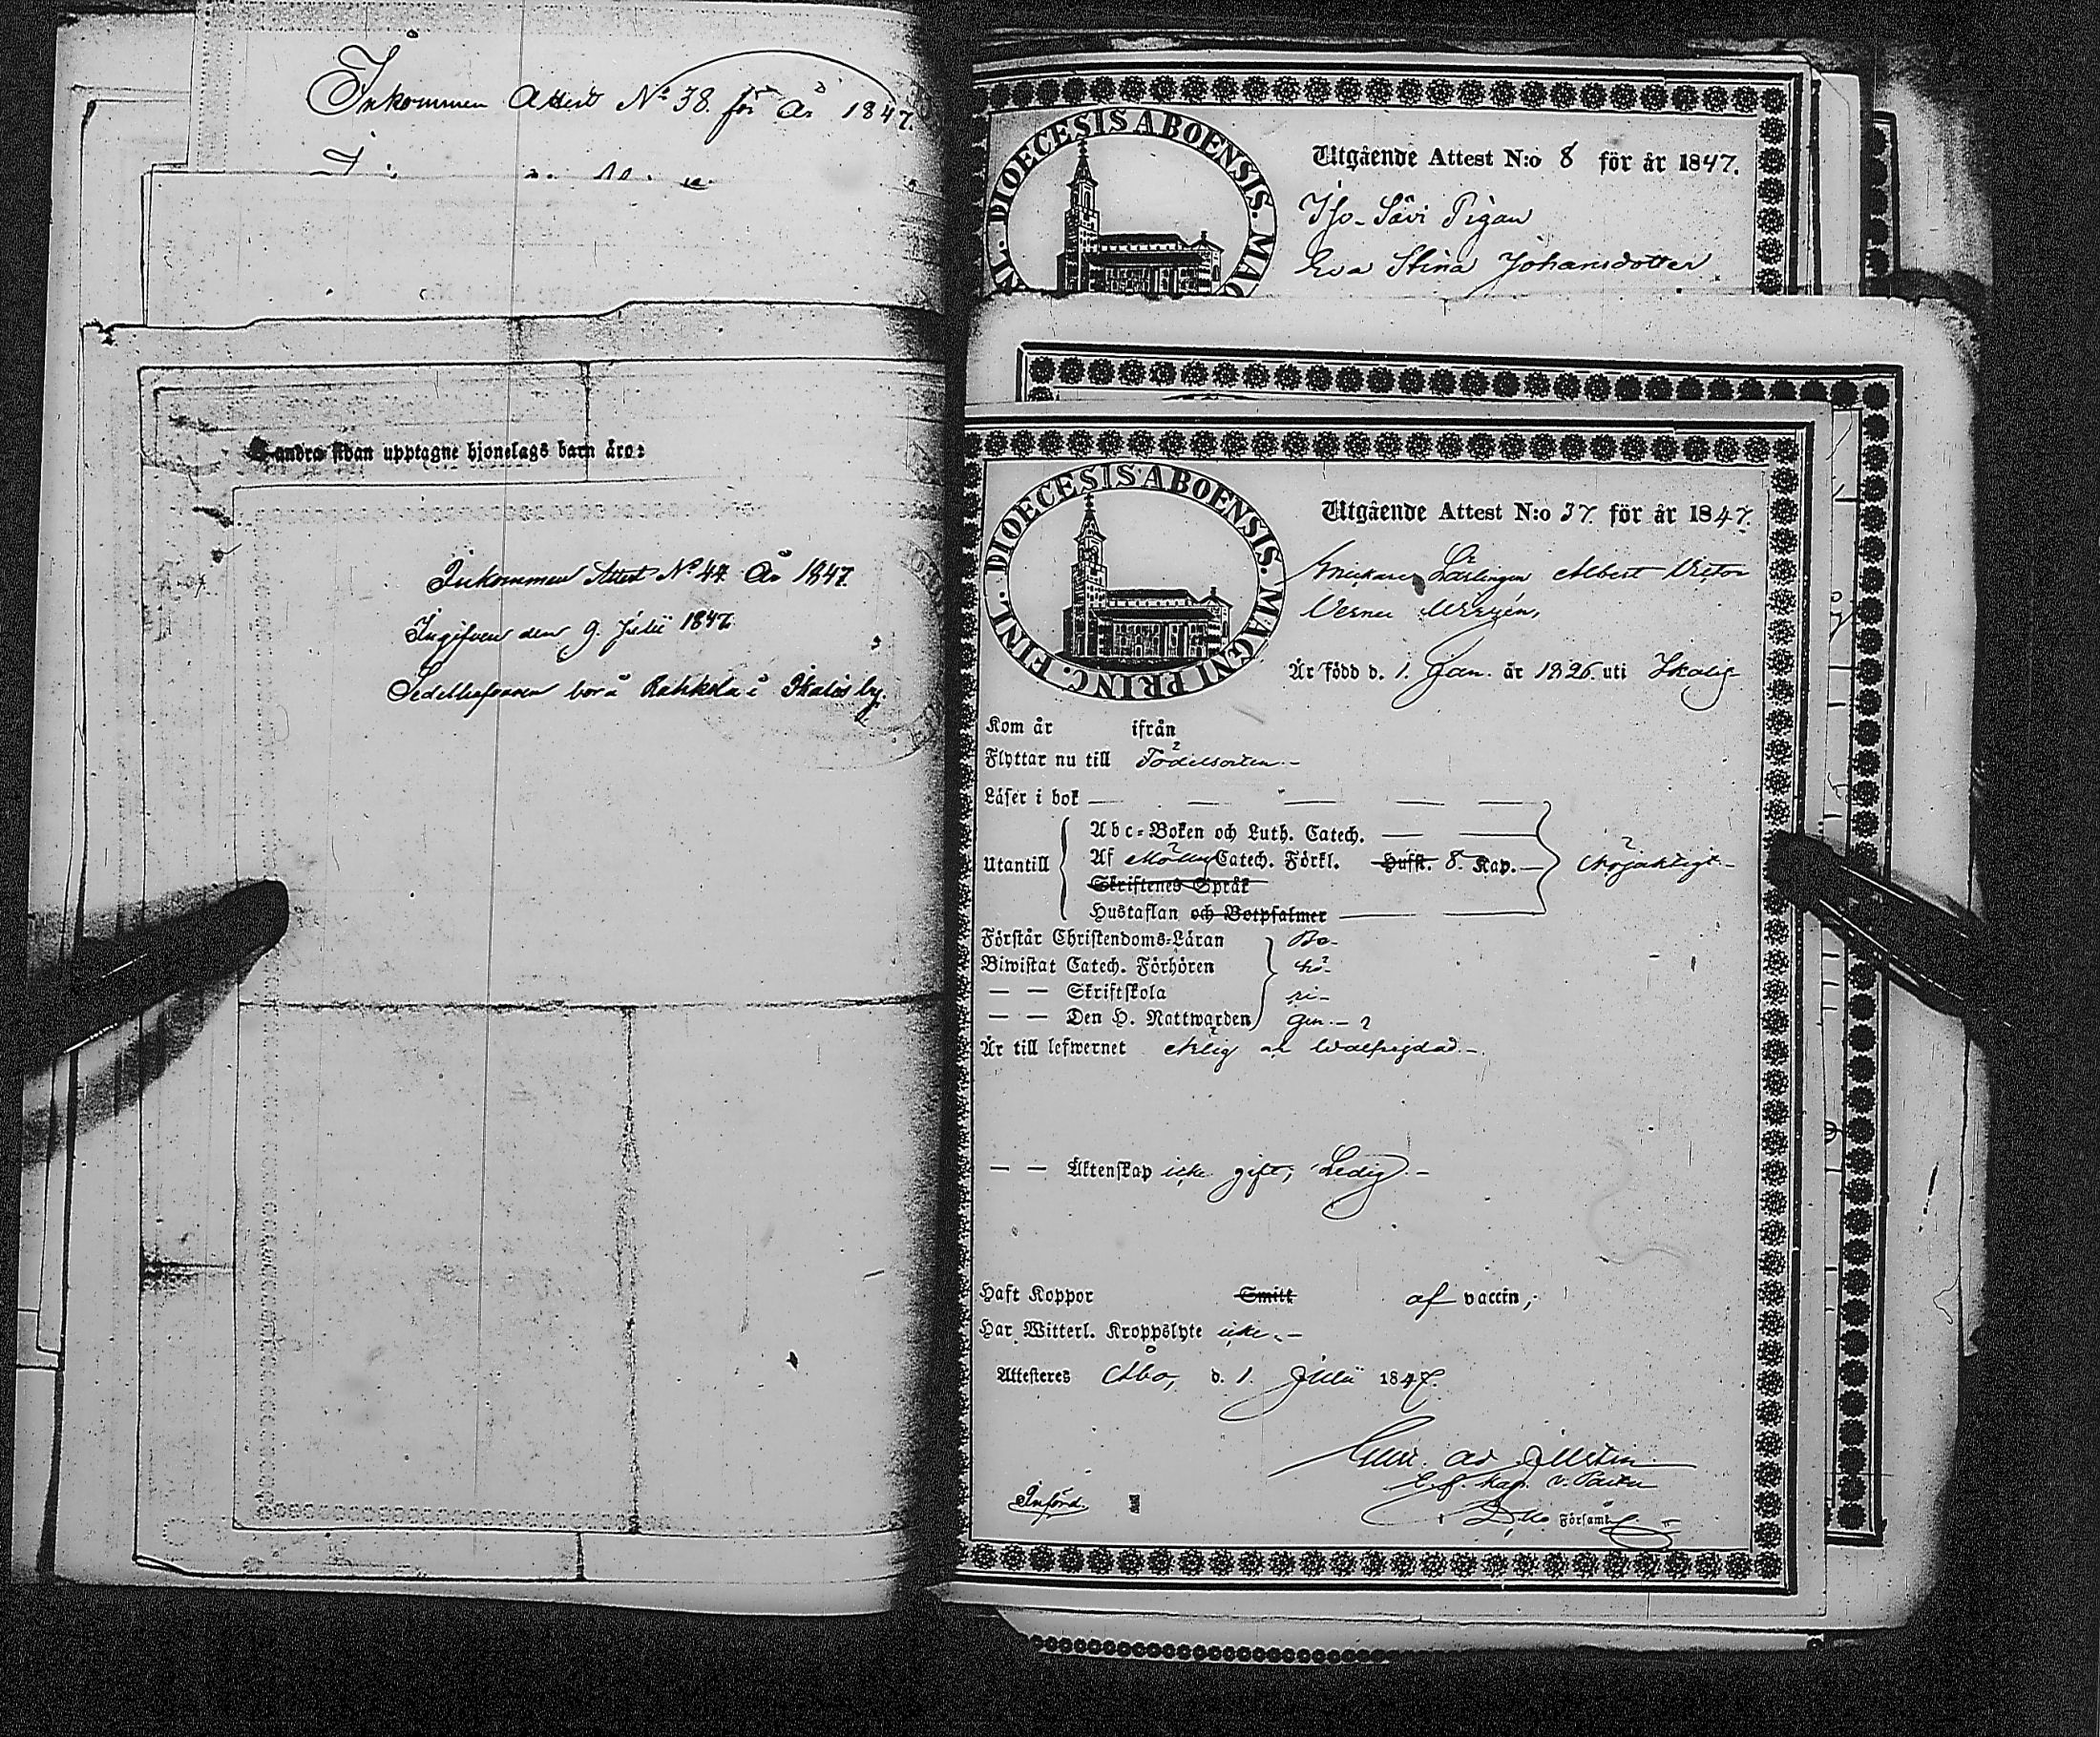 Inkommen Attest No 38. för År 1847.
andra sidan upptagne hjonelags barn äro:
Inkommen Attest No 47 År 1847.
Ingifven den 9. Julii 1847.
Sedelhafvaren bor å Rahkola i Ikalis by.
FINL. DIOECESIS ABOENSIS. MAG
Utgående Attest N:o 8 för år 1847.
Iso-Sävi Pigan
Eva Stina Johansdotter
FINL. DIOECESIS ABOENSIS. MAGNI PRINC.
Utgående Attest N:o 37. för år 1847.
Lärlingen Albert Victor
Verner
Är född d. 1. Jan. år 1826. uti Ikalis
Kom år ifrån
Flyttar nu till Födelseorten.
Läser i bok
Abc-Boken och Luth. Catech.
Utantill
Af Catech. Förkl. Hufst. 8. Kap.
Skriftenes Språk
Hustaflan och Botpsalmer
Förstår Christendoms-Läran
Biwistat Catech. Förhören
— — Skriftskola
— — Den H. Nattwarden
Är till lefwernet ärlig o. wälfrejdad.
— — Äktenskap icke gift, Ledig.
Haft Koppor Smitt af vaccin,
Har Witterl. Kroppslyte icke.
Attesteres Åbo, d. 1. Julii 1847.
Införd.
Församl.